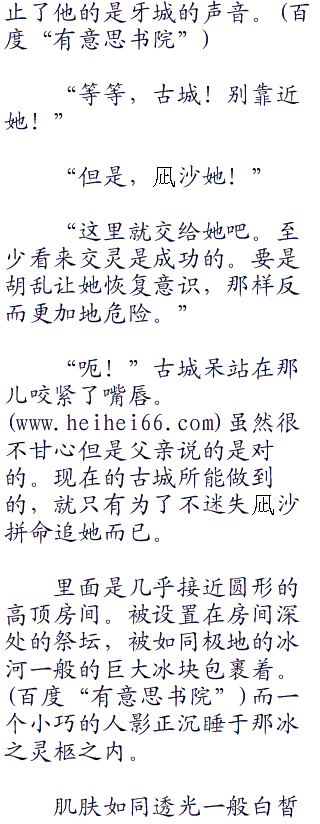 止了他的是牙城的声音。(百
度“有意思书院”)
“等等，古城！别靠近
她！”
“但是，凪沙她！”
“这里就交给她吧。至
少看来交灵是成功的。要是
胡乱让她恢复意识，那样反
而更加地危险。”
“呃！”古城呆站在那
儿咬紧了嘴唇。
(www.heihei66.com)虽然很
不甘心但是父亲说的是对
的。现在的古城所能做到
的，就只有为了不迷失凪沙
拼命追她而已。
里面是几乎接近圆形的
高顶房间。被设置在房间深
处的祭坛，被如同极地的冰
河一般的巨大冰块包裹着。
(百度“有意思书院”)而一
个小巧的人影正沉睡于那冰
之灵柩之内。
肌肤如同透光一般白皙